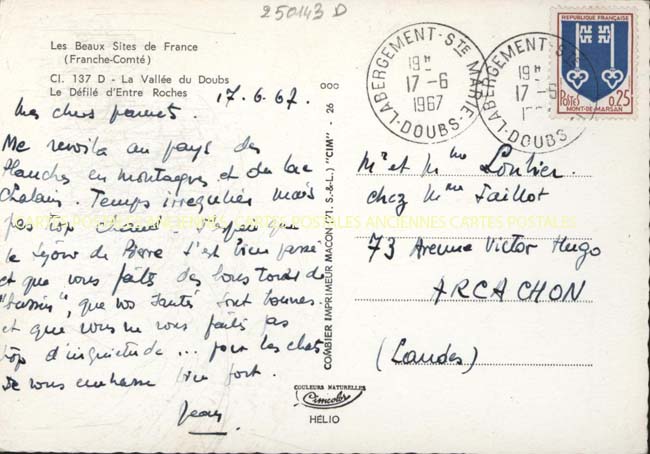 250143 D
Les Beaux Sites de France
(Franche-Comté)
Cl. 137 D - La Vallée du Doubs
Le Défilé d'Entre Roches
17.6.67.
Mes chers
Me revoilà au pays des
Planches en montagnes et du lac
Chalain. Temps irrégulier mais
pas trop chaud. J'espère que
le séjour de Pierre s'est bien passé
et que vous faites des bons tours de
"bassin", que vos santés sont bonnes.
et que vous ne vous faites pas
trop d'inquiétude ... pour les chats
Je vous embrasse bien fort.
Jean
COMBIER IMPRIMEUR MACON (71. S.-&L.) "CIM" - 26
COULEURS NATURELLES
Cimcolor
HÉLIO
LABERGEMENT-STE MARIE
19H
17-6
1967
DOUBS
LABERGEMENT-STE
19H
17-6
DOUBS
REPUBLIQUE FRANÇAISE
Postes 0,25
MONT-DE-MARSAN
Mr et Mme
chez Mme Jaillot
73 Avenue Victor Hugo
ARCACHON
(Landes)
CARTES POSTALES ANCIENNES CARTES POSTALES ANCIENNES CARTES POSTALES